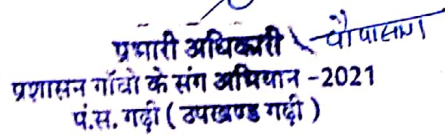 प्रभारी अधिकारी चौपासाग
प्रशासन गाँवो के संग अभियान -2021
पं.स. गढ़ी ( उपखण्ड गढ़ी )